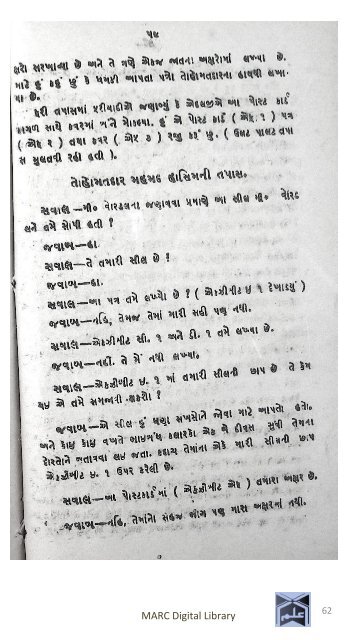 ૫૯
હરો સરખાવ્યા છે અને તે ત્રણે એકજ જાતના અક્ષરોમાં લખ્યા છે.
માટે હું કહું છું કે ધમકી આપતા પત્રો તોહોમતદારના હાથથી લખા-
યા છે.
ફરી તપાસમાં ફરીયાદીએ જણાવ્યું કે એદલજીએ આ પોસ્ટ કાર્ડ
કાગળ સાથે કવરમાં મને મોકલ્યા. હું એ પોસ્ટ કાર્ડ ( એક્ષ ૧ ) પત્ર
( એક્ષ ૨ ) તથા કવર ( એક્ષ ૩ ) રજી કરૂં છું. ( ઉલટ પાલટ તપા
સ મુલતવી રહી હતી ).
તોહોમતદાર મહમદ હાસિમની તપાસ.
સવાલ—મી. વોરડલના જણાવવા પ્રમાણે આ સીલ મી. વોરડ
લને તમે સોપી હતી ?
જવાબ—હા.
સવાલ—તે તમારી સીલ છે !
જવાબ—હા.
સવાલ—આ પત્ર તમે લખ્યો છે ? ( એક્ઝીબીટ ઇ ૧ દેખાડયું )
જવાબ—નહિ, તેમજ તેમાં મારી સહી પણ નથી.
સવાલ—એક્ઝીબીટ સી. ૧ અને ડી. ૧ તમે લખ્યા છે.
જવાબ—નહી. તે મેં નથી લખ્યા.
સવાલ—એક્ઝીબીટ ઇ. ૧ માં તમારી સીલની છાપ છે તે કેમ
થઇ એ તમે સમજાવી શકશો !
જવાબ—એ સીલ હું ઘણા સખસોને જોવા માટે આપતો હતો.
અને કાંઇ કાંઇ વખતે બાબભંધ કલારકો એક બે દીવસ સુધી તેમના
દોસ્તોને બતાવવા લઇ જતા. કદાચ તેમાંના એકે મારી સીલની છાપ
એક્ઝીબીટ ઇ. ૧ ઉપર કરેલી છે.
સવાલ—આ પોસ્ટકાર્ડમાં ( એક્ઝીબીટ એક્ષ ) તમારા અક્ષર છે.
જવાબ—નહિ, તેમાંનો સહજ ભાગ પણ મારા અક્ષરમાં નથી.
MARC Digital Library
62